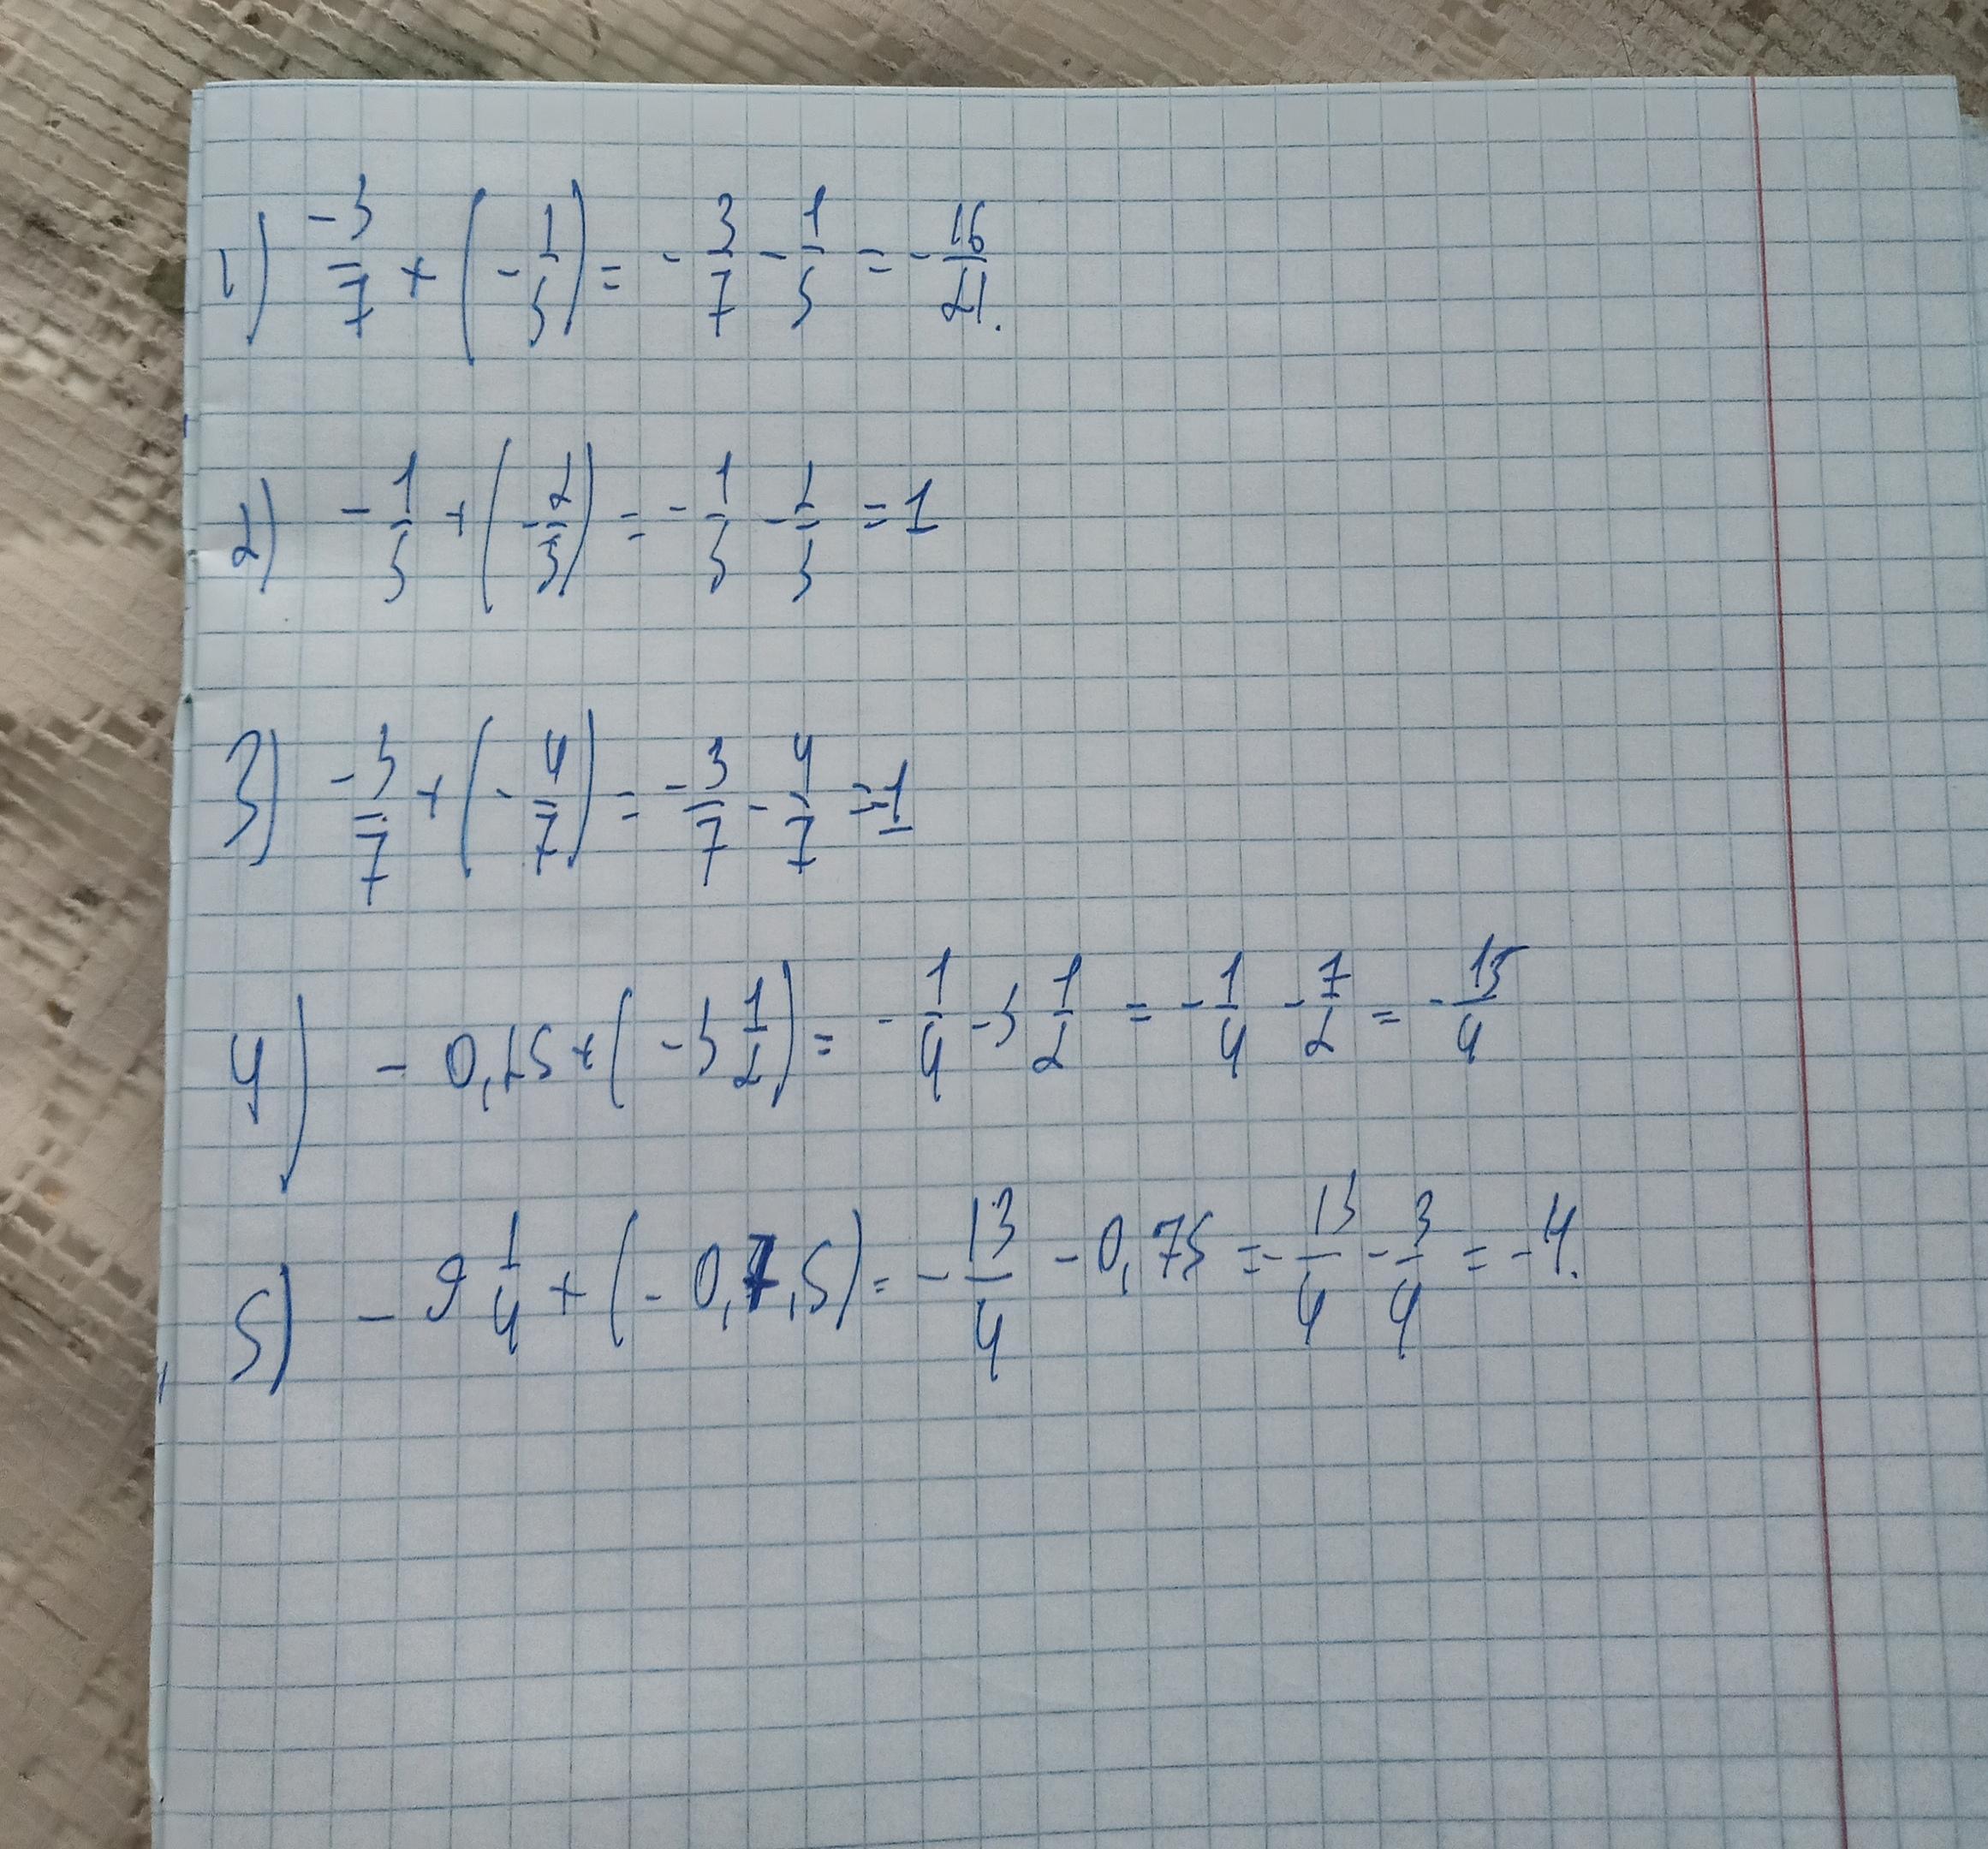 1) -3/7 + (-1/3) = -3/7 - 1/3 = -16/21.
2) -1/3 + (-2/3) = -1/3 - 2/3 = 1
3) -3/7 + (-4/7) = -3/7 - 4/7 = -1
4) - 0,25 + (-3 1/2) = -1/4 - 3 1/2 = -1/4 - 7/2 = -15/4
5) - 9 1/4 + (- 0,7,5) = -13/4 - 0,75 = -13/4 - 3/4 = -4.